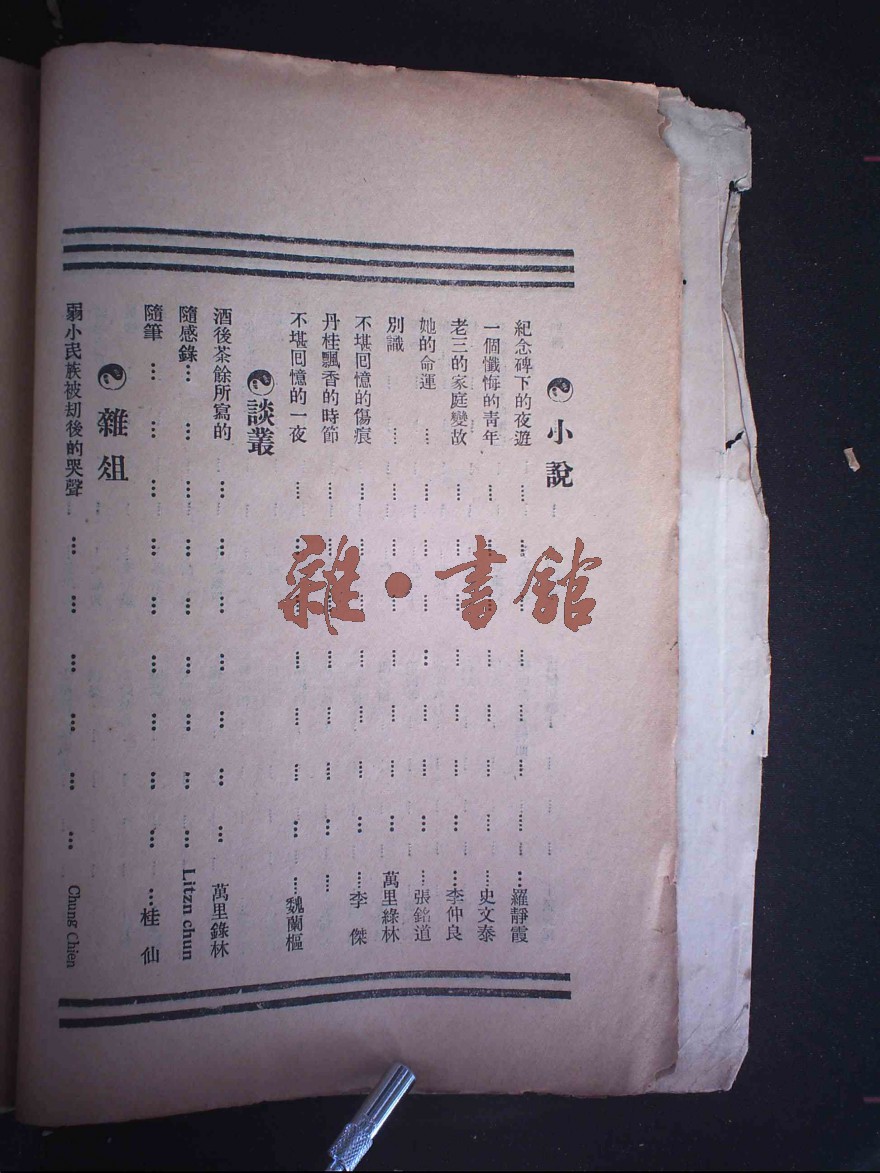 小說
紀念碑下的夜遊……羅靜霞
一個懺悔的青年……史文泰
老三的家庭變故……李仲良
她的命運……張銘道
別識……萬里綠林
不堪回憶的傷痕……李傑
丹桂飄香的時節……
不堪回憶的一夜……魏蘭樞
談叢
酒後茶餘所寫的……萬里錄林
隨感錄……Litzn chun
隨筆……桂仙
雜俎
弱小民族被刧後的哭聲……Chung Chien
雜·書館